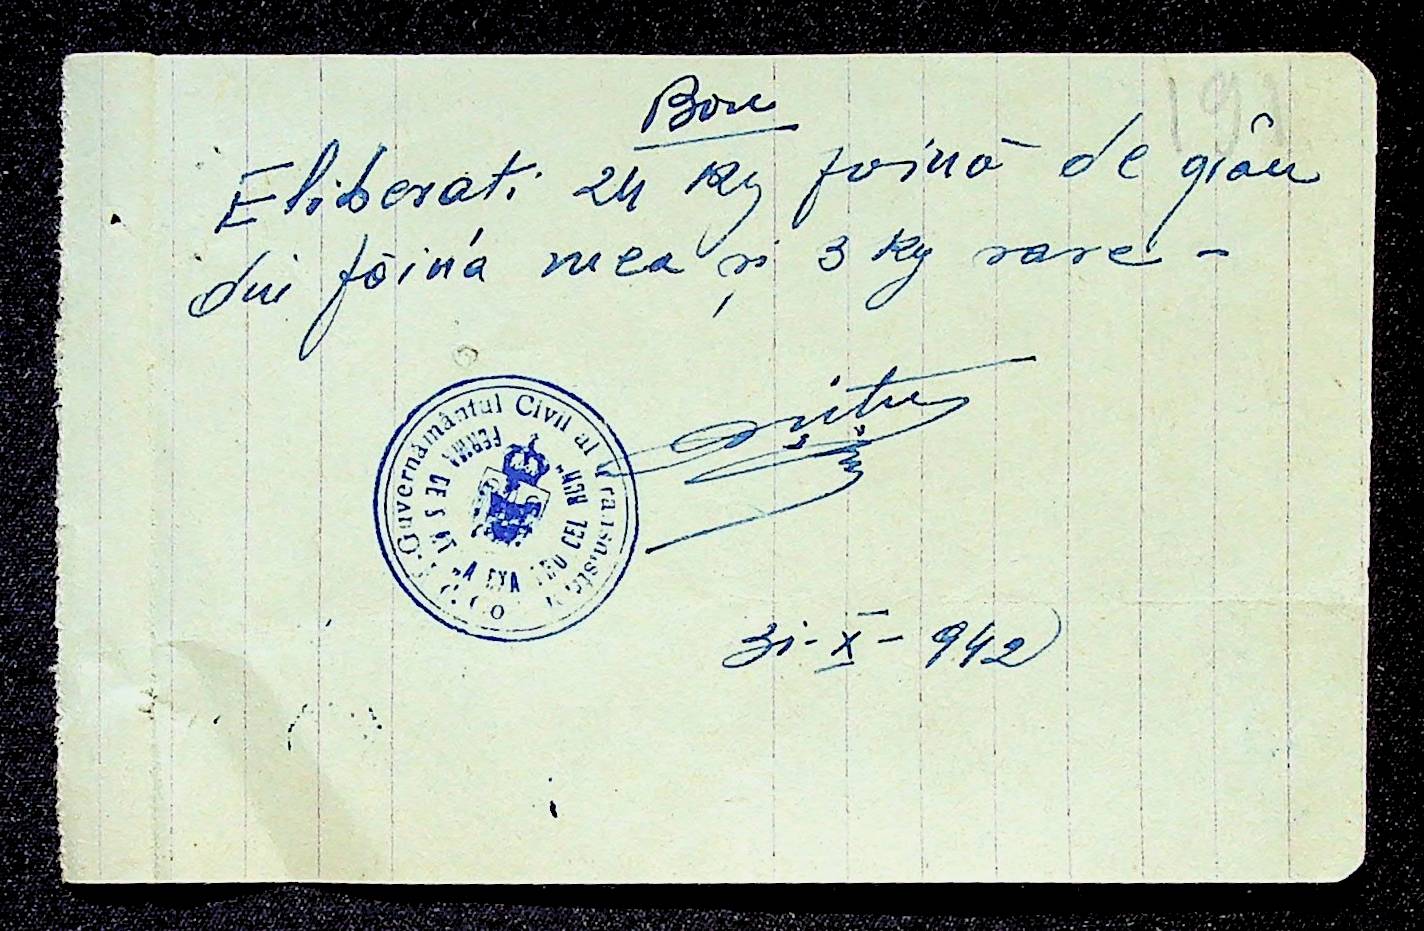 191
Bon
Eliberati 24 Kg foină de grâu
din foină mea și 3 Kg sare -
Guvernământul Civil al Transnistriei
FERMA DE STAT
CEL BUN"
31-X-942